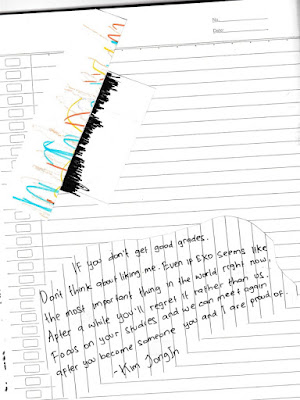 No.
Date:
If you don't get good grades.
Don't think about liking me. Even if Exo seems like
the most important thing in the world right now.
After a while you'll regret it rather than us.
Focus on your studies and we can meet again
after you become someone you and I are proud of.
- Kim JongIn